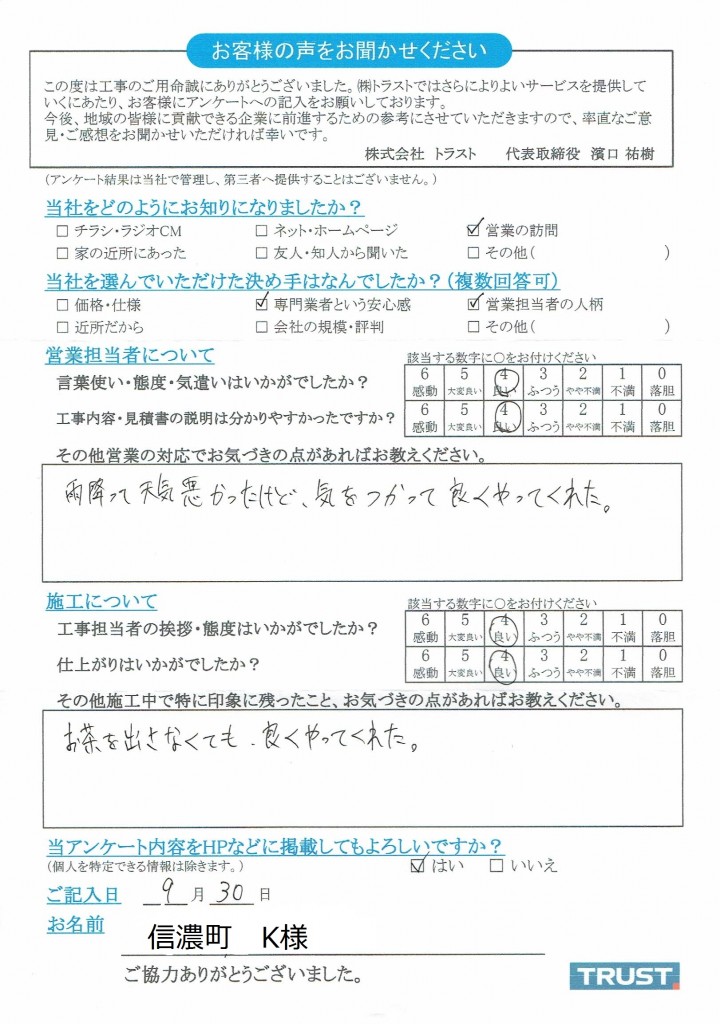 お客様の声をお聞かせください
この度は工事のご用命誠にありがとうございました。㈱トラストではさらによりよいサービスを提供して
いくにあたり、お客様にアンケートへの記入をお願いしております。
今後、地域の皆様に貢献できる企業に前進するための参考にさせていただきますので、率直なご意
見・ご感想をお聞かせいただければ幸いです。
株式会社 トラスト　代表取締役 濱口 祐樹
(アンケート結果は当社で管理し、第三者へ提供することはございません。)
当社をどのようにお知りになりましたか？
□ チラシ・ラジオCM □ ネット・ホームページ ☑ 営業の訪問
□ 家の近所にあった □ 友人・知人から聞いた □ その他( )
当社を選んでいただけた決め手はなんでしたか？(複数回答可)
□ 価格・仕様 ☑ 専門業者という安心感 ☑ 営業担当者の人柄
□ 近所だから □ 会社の規模・評判 □ その他( )
営業担当者について 該当する数字に○をお付けください
言葉使い・態度・気遣いはいかがでしたか？ 6 5 4 3 2 1 0
感動 大変良い 良い ふつう やや不満 不満 落胆
工事内容・見積書の説明は分かりやすかったですか？ 6 5 4 3 2 1 0
感動 大変良い 良い ふつう やや不満 不満 落胆
その他営業の対応でお気づきの点があればお教えください。
雨降って天気悪かったけど、気をつかって良くやってくれた。
施工について 該当する数字に○をお付けください
工事担当者の挨拶・態度はいかがでしたか？ 6 5 4 3 2 1 0
感動 大変良い 良い ふつう やや不満 不満 落胆
仕上がりはいかがでしたか？ 6 5 4 3 2 1 0
感動 大変良い 良い ふつう やや不満 不満 落胆
その他施工中で特に印象に残ったこと、お気づきの点があればお教えください。
お茶を出さなくても、良くやってくれた。
当アンケート内容をHPなどに掲載してもよろしいですか？
(個人を特定できる情報は除きます。) ☑ はい □ いいえ
ご記入日 9 月 30 日
お名前
信濃町　K様
ご協力ありがとうございました。
TRUST.